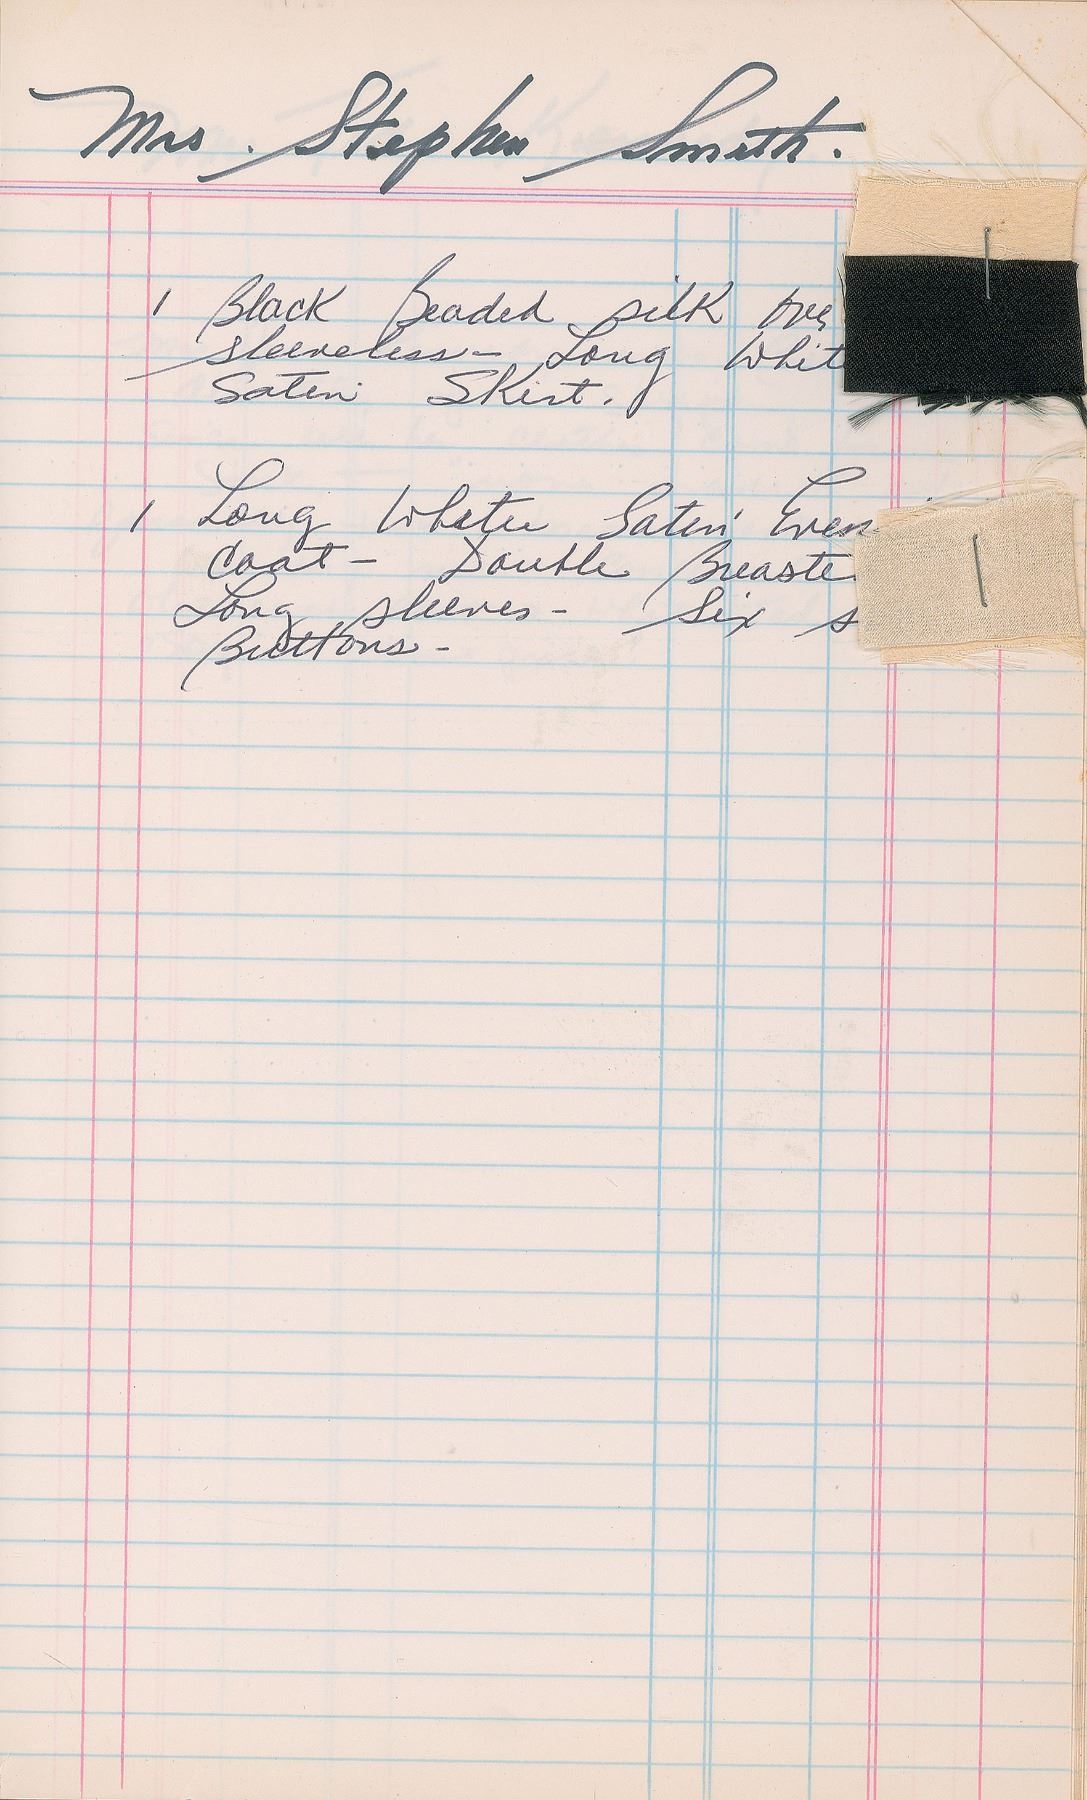 Mrs. Stephen Smith.
1 Black Beaded silk
sleeveless- Long
Satin Skirt.
1 Long White Satin
Coat- Double
Long sleeves- Six
Buttons-